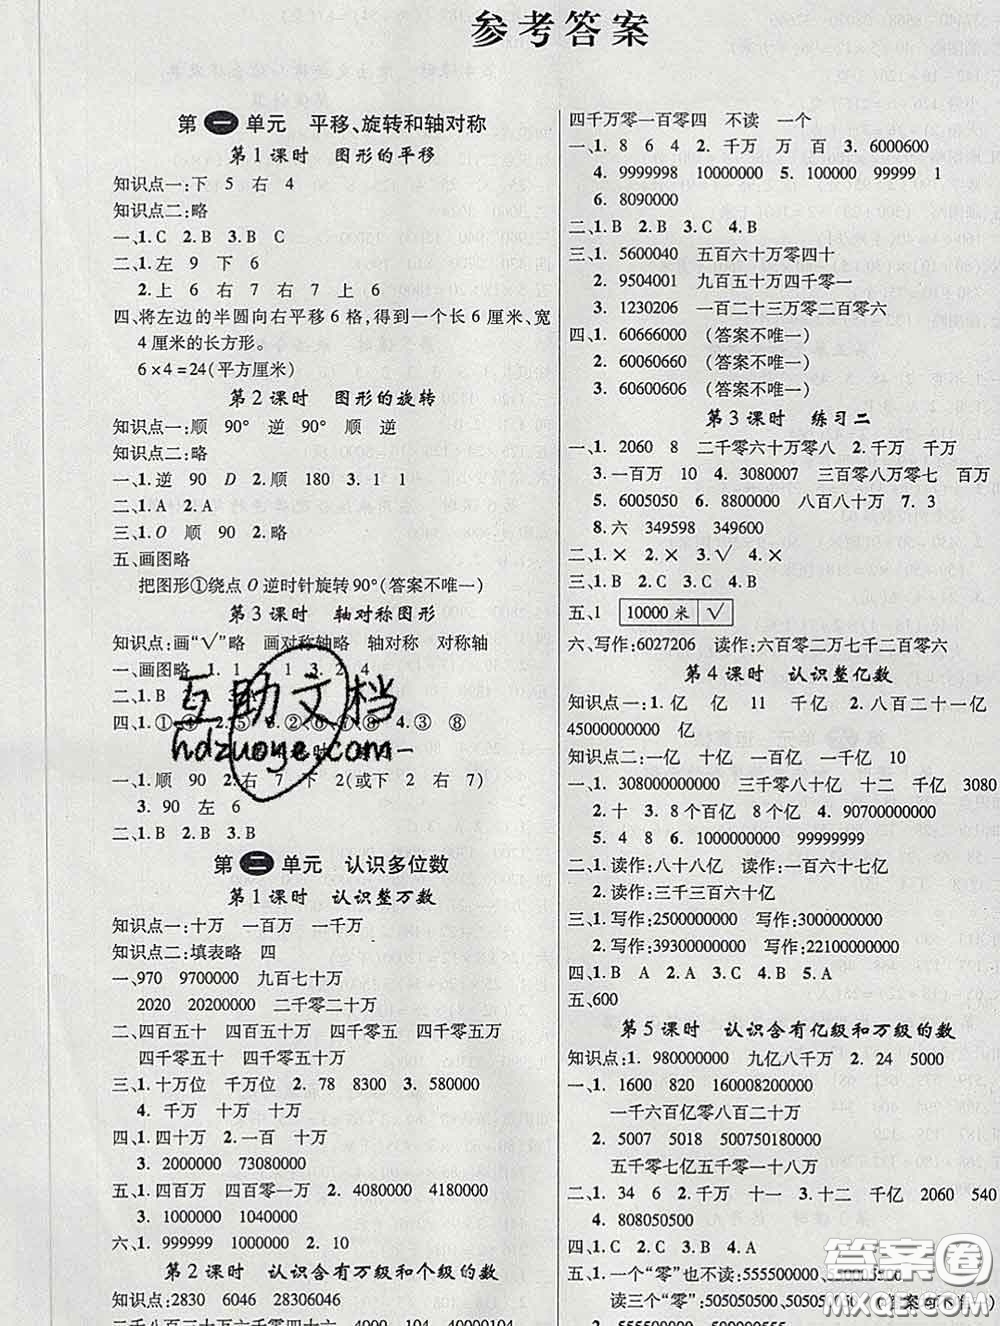 参考答案
第一单元 平移、旋转和轴对称
第1课时 图形的平移
知识点一:下 5 右 4
知识点二:略
一、1.C 2.B 3.B C
二、1.左 9 下 6
2.上 6 右 7 右 7 上 6
四、将左边的半圆向右平移6格,得到一个长6厘米、宽
4厘米的长方形。
6×4=24(平方厘米)
第2课时 图形的旋转
知识点一:顺 90° 逆 90° 顺 逆
知识点二:略
一、1.逆 90 D 2.顺 180 3.1 1
二、1.A 2.A
三、1.O 顺 90 2.略
五、画图略
把图形①绕点O逆时针旋转90°(答案不唯一)
第3课时 轴对称图形
知识点:画“√”略 画对称轴略 轴对称 对称轴
一、画图略 1.1 2 1 3 2 4
二、1.B
四、1.① ④ 2.⑤ 3.② ⑥ ⑦ 4.③ ⑧
一、1.顺 90 2.右 7 下 2(或下 2 右 7)
3.90 左 6
二、1.B 2.B 3.B
互助文档
hdzuoye.com
第二单元 认识多位数
第1课时 认识整万数
知识点一:十万 一百万 一千万
知识点二:填表略 四
一、970 9700000 九百七十万
2020 20200000 二千零二十万
二、四百五十 四百五十万 四千零五 四千零五万
四千零五十 四千零五十万
三、1.十万位 千万位 2.78 8300 3.580000
4.千万 十万 十万
四、1.四十万 2.一百 十万
3.2000000 73080000
五、1.四百万 四百零一万 2.4080000 4180000
3.1000000 1040000
六、1.999999 1000000 2.10
第2课时 认识含有万级和个级的数
知识点:2830 6046 28306046
二千八百三十万六千零四十六 4 40000104
四千万零一百零四 不读 一个
一、1.8 6 4 2.千万 万 百 3.6000600
4.9999998 10000000 5.100000 99999 1
6.8090000
二、1.B 2.B 3.C 4.B
三、1.5600040 五百六十万零四十
2.9504001 九百五十万四千零一
3.1230206 一百二十三万零二百零六
四、1.60666000 (答案不唯一)
2.60060660 (答案不唯一)
3.60600606 (答案不唯一)
第3课时 练习二
一、1.2060 8 二千零六十万零八 2.千万 千万
3.一百万 10 4.3080007 三百零八万零七 百万
5.6005050 6.8800000 八百八十万 7.3
8.六 349598 349600
二、1.× 2.× 3.√ 4.×
三、1.B 2.C 3.B 4.C
五、1 10000米 √
六、写作:6027206 读作:六百零二万七千二百零六
第4课时 认识整亿数
知识点一:1.亿 亿 11 千亿 2.八百二十一亿
45000000000 亿
知识点二:一亿 十亿 一百亿 一千亿 10
一、1.308000000000 三千零八十亿 十二 千亿 3080
2.十 3.8个百亿 8个亿 4.90700000000
5.4 8 6.1000000000 99999999
二、1.读作:八十八亿 读作:一百六十七亿
2.读作:三千三百六十亿
三、1.写作:2500000000 写作:3000000000
2.写作:39300000000 写作:22100000000
四、1.B A 2.A 3.C 4.A
五、600
第5课时 认识含有亿级和万级的数
知识点:1.980000000 九亿八千万 2.24 5000
一、1.1600 820 160008200000
一千六百亿零八百二十万
2.5007 5018 500750180000
五千零七亿五千零一十八万
二、1.34 6 2.千万 十一 3.十二 千亿 2060 540
4.808050500
四、1.C 2.C 3.B 4.A
五、1.一个“零”也不读:555500000、550005500
读三个“零”:505050500、505005050
答案圈